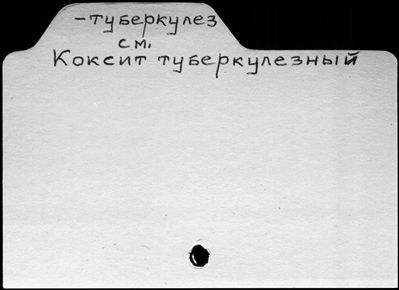 -туберкулез
см.
Коксит туберкулезный